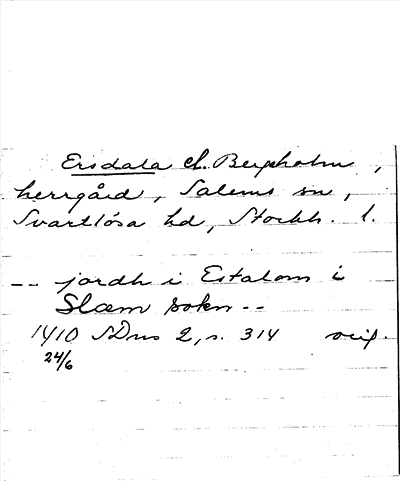 Ersdala el. Bergholm,
herrgård, Salems sn,
Svartlösa hd, Stockh. l.
-- jordh i Estalom i
Slæm sokn --
1410 SDns 2, s. 314 orig.
24/6